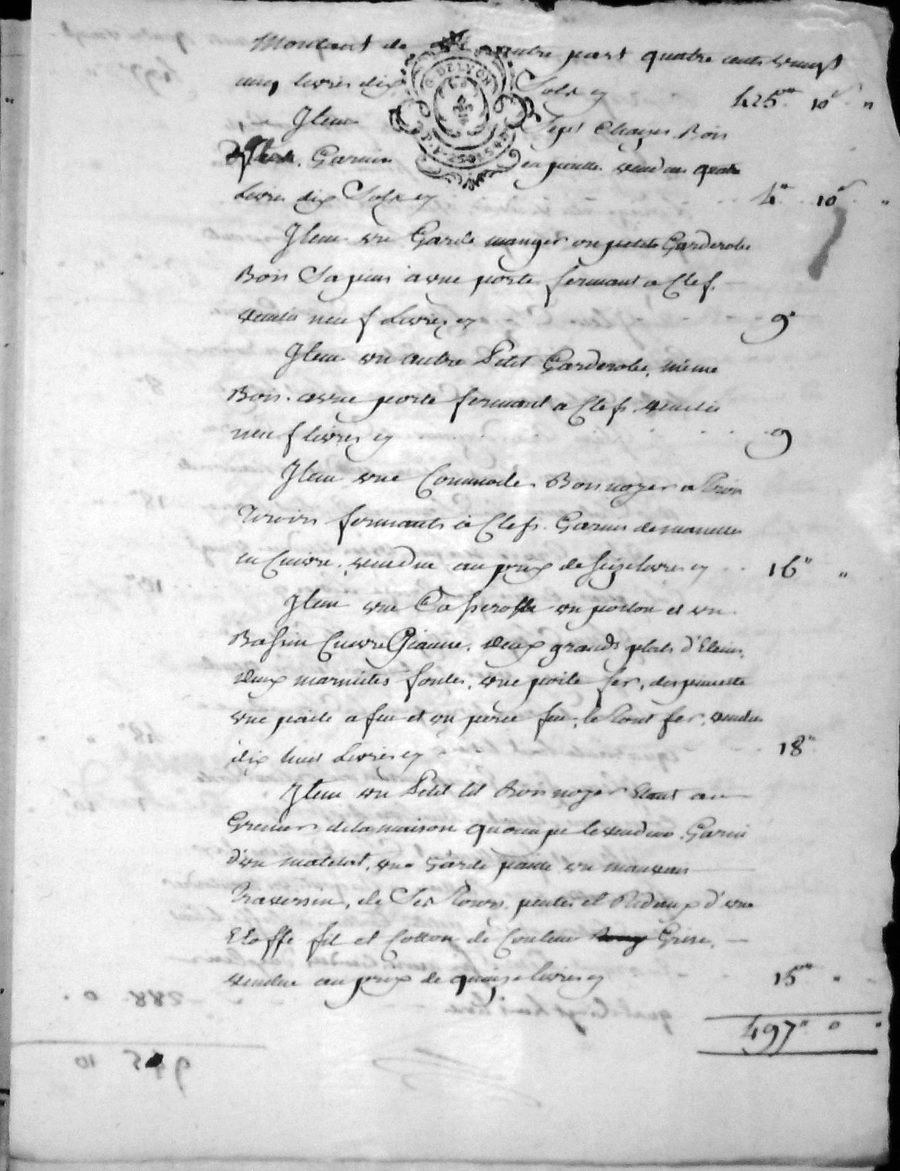 Montant de autre part quatre cents vingt
cinq livres dix Sols cy 425 10
Item Sept Chaizes Bois
Garnies en paille vendues quatre
Livres dix Sols cy 4 10
Item un Garde manger ou petite Garderobe
Bois Sapin a une porte fermant a Clef.
vendu neuf Livres cy 9
Item un autre Petit Garderobe, même
Bois. a une porte fermant a Clef. vendu
neuf livres cy 9
Item une Commode Bois noyer a trois
tiroirs fermants à Clefs Garnis de manettes
en Cuivre. vendue au prix de Seize livres cy 16
Item une Casserolle un poelon et un
Bassin Cuivre Giaune, deux grands plats d'Etein,
deux marmites fontes, une poile fer, des pincettes
une paele a feu et un perce feu, le tout fer, vendu
dix huit Livres cy 18
Item un Petit lit Bois noyer Etant au
Grenier de la maison qu'occupe le vendeur Garni
d'un matelat, une Garde paille un mauvais
Traversin, et Ses Tours, pentes et Rideaux d'une
Etoffe fil et Cotton de Couleur Grise,
vendue au prix de quinze livres cy 15
497 0
G. DE LYON